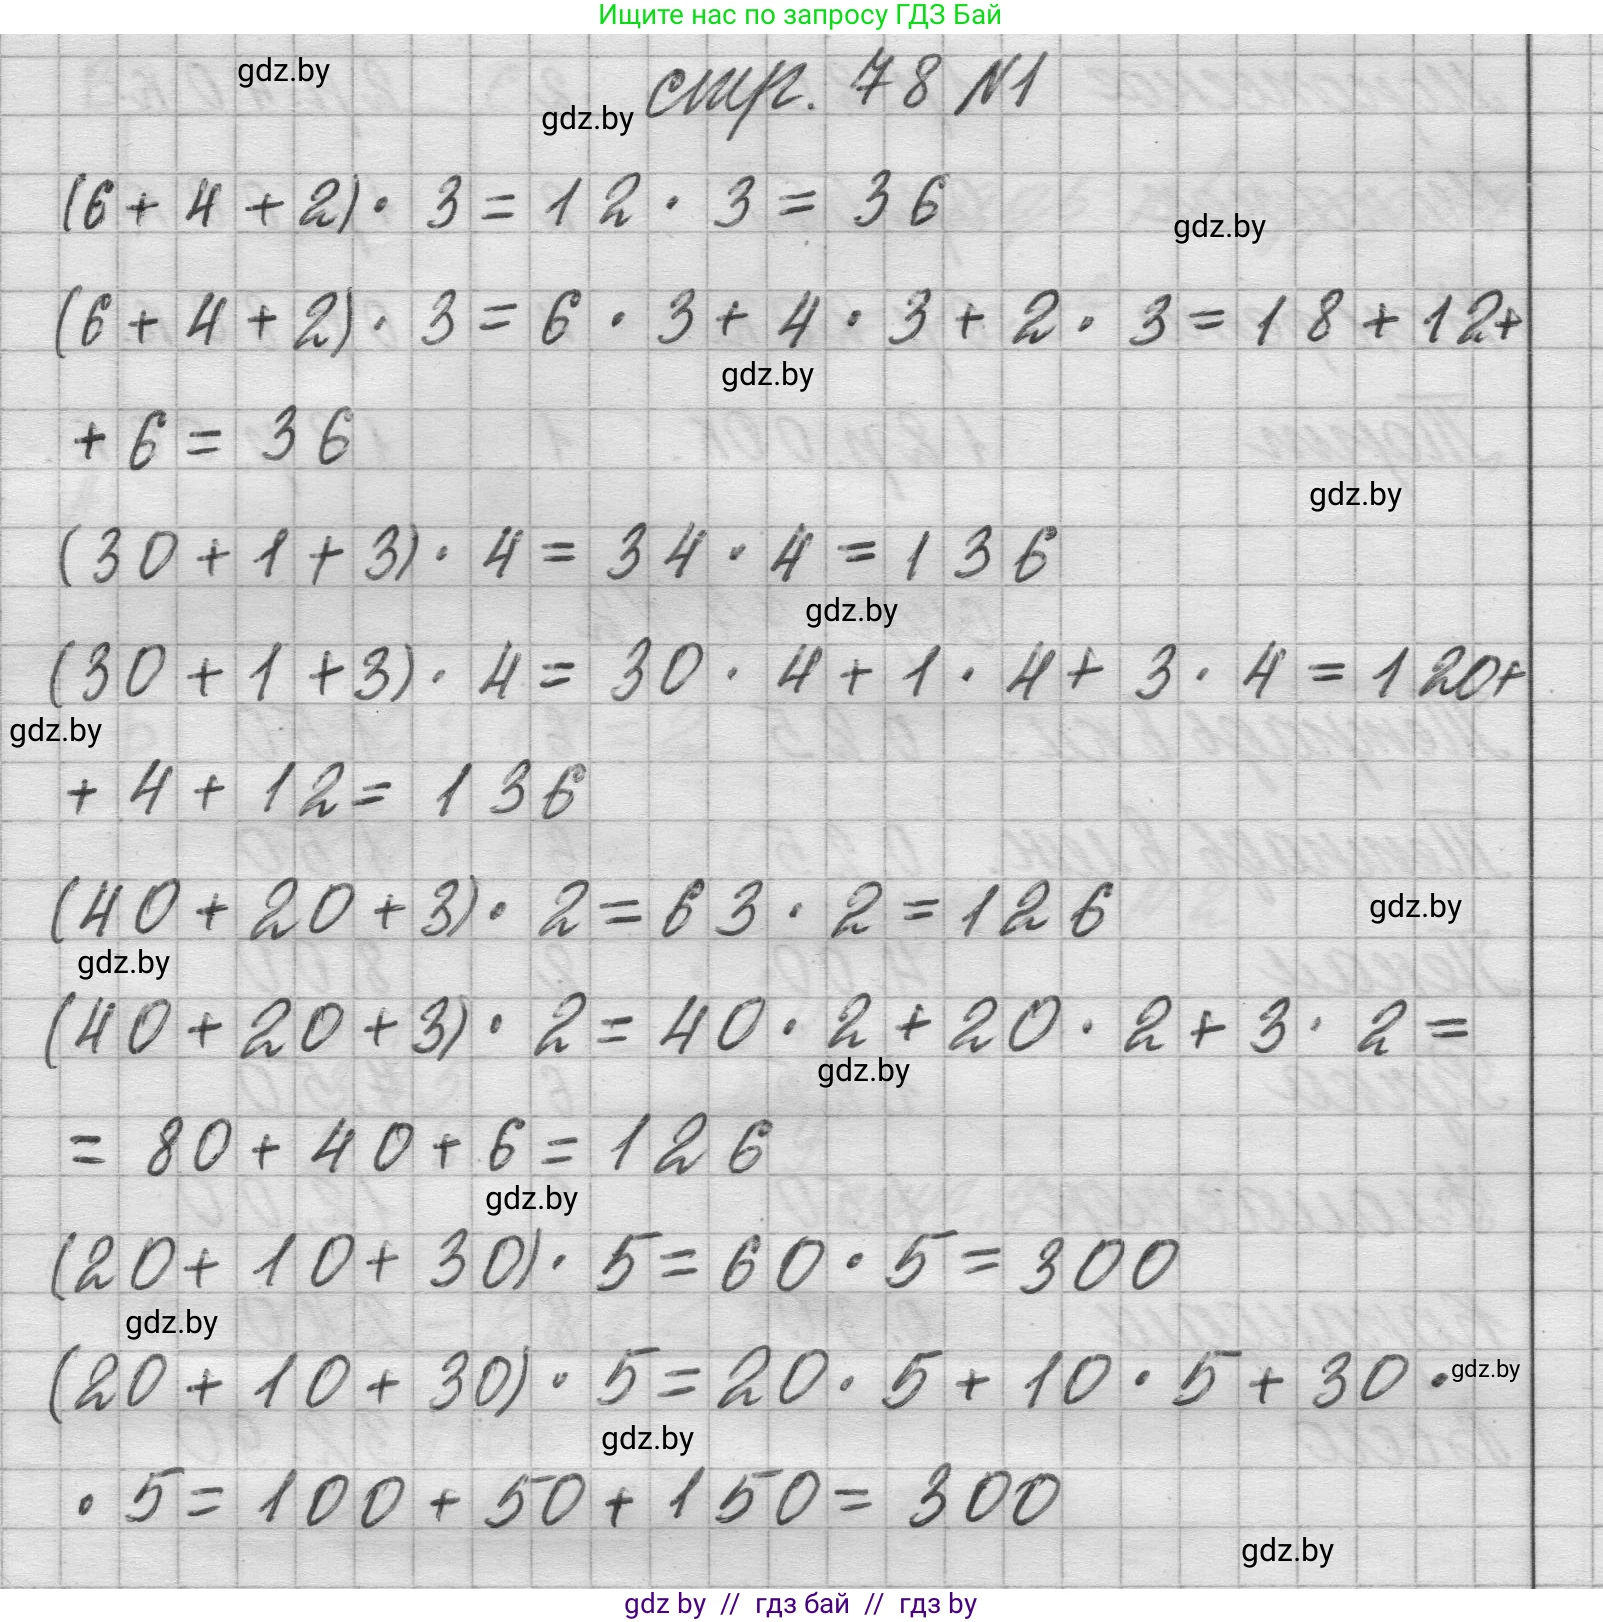 Ищите нас по запросу ГДЗ Бай
gdz.by
стр. 78 №1
gdz.by
(6 + 4 + 2) · 3 = 12 · 3 = 36
gdz.by
(6 + 4 + 2) · 3 = 6 · 3 + 4 · 3 + 2 · 3 = 18 + 12 +
gdz.by
+ 6 = 36
gdz.by
(30 + 1 + 3) · 4 = 34 · 4 = 136
gdz.by
(30 + 1 + 3) · 4 = 30 · 4 + 1 · 4 + 3 · 4 = 120 +
gdz.by
+ 4 + 12 = 136
(40 + 20 + 3) · 2 = 63 · 2 = 126
gdz.by
gdz.by
(40 + 20 + 3) · 2 = 40 · 2 + 20 · 2 + 3 · 2 =
gdz.by
= 80 + 40 + 6 = 126
gdz.by
(20 + 10 + 30) · 5 = 60 · 5 = 300
gdz.by
(20 + 10 + 30) · 5 = 20 · 5 + 10 · 5 + 30 ·
gdz.by
gdz.by
· 5 = 100 + 50 + 150 = 300
gdz.by
gdz by // гдз бай // гдз by